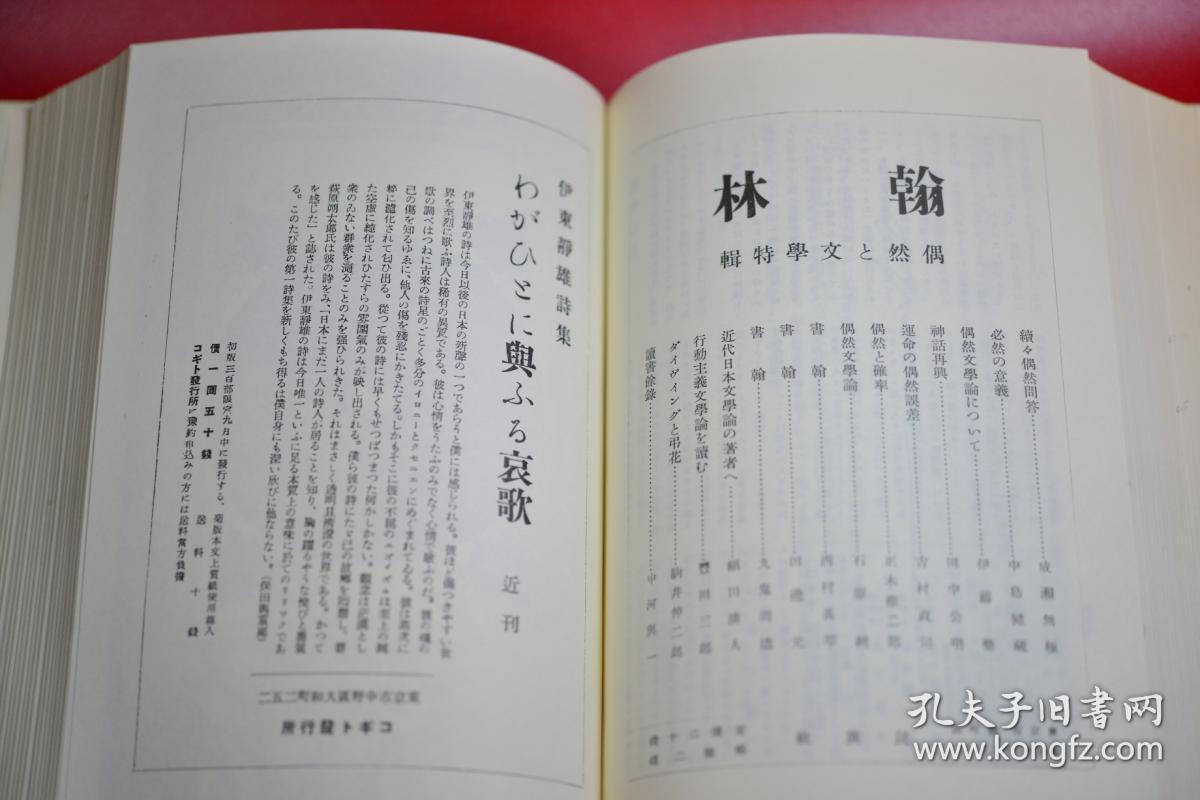 翰林
偶然と文學特輯
續々偶然問答…成瀬無極
必然の意義…中島健藏
偶然文學論について…伊藤整
神話再興…田中公明
運命の偶然誤差…吉村貞司
偶然と確率…正木修二郎
偶然文學論…石原純
書翰…西村眞琴
書翰…田邊元
書翰…九鬼周造
近代日本文學論の著者へ…福田清人
行動主義文學論を讀む…豐田三郎
ダイヴィングと弔花…駒井伸二郎
讀書餘錄…中河與一
伊東靜雄詩集
わがひとに與ふる哀歌 近刊
伊東靜雄の詩は今日以後の日本の
界を至烈に歌ふ詩人は稀有の異質である。彼は心情をうたふのみでなく心情で歌ふのだ。彼の魂の
歌の調べはつねに古來の詩星のごとく多分のイロニーとクセエンにめぐまれてゐる。
己の傷を知るゆゑに、他人の傷を殘忍にかきたてる。しかもそこに彼の不屈のエゴイズムは至上の純
粹に濾化されて匂ひ出る。從つて彼の詩には早くもせつぱつまつた何かしかない。觀念は茫漠とし
た空虛に純化されひたすらの雰圍氣のみが映し出される。僕ら彼の詩にたゞ己の故鄕を囘想し、群
衆のゐない群衆を
萩原朔太郎氏は彼の詩をみ、「日本にまだ一人の詩人が居ることを知り、胸の躍るやうな悅びと勇氣
を感じた」と誌された。伊東靜雄の詩は今日唯一といふに足る本質上の意味に於てのリリックであ
る。このたび彼の第一詩集を新しくもち得るは僕自身にも深い欣びに他ならない。(保田與重郎)
初版三百部限定九月中に發行する、菊版本文上質紙使用箱入
價一圓五十錢 送料十錢
コギト發行所に豫約申込みの方には送料當方負擔
東京市中野區大和町二五二
コギト發行所
孔夫子旧书网
www.kongfz.com